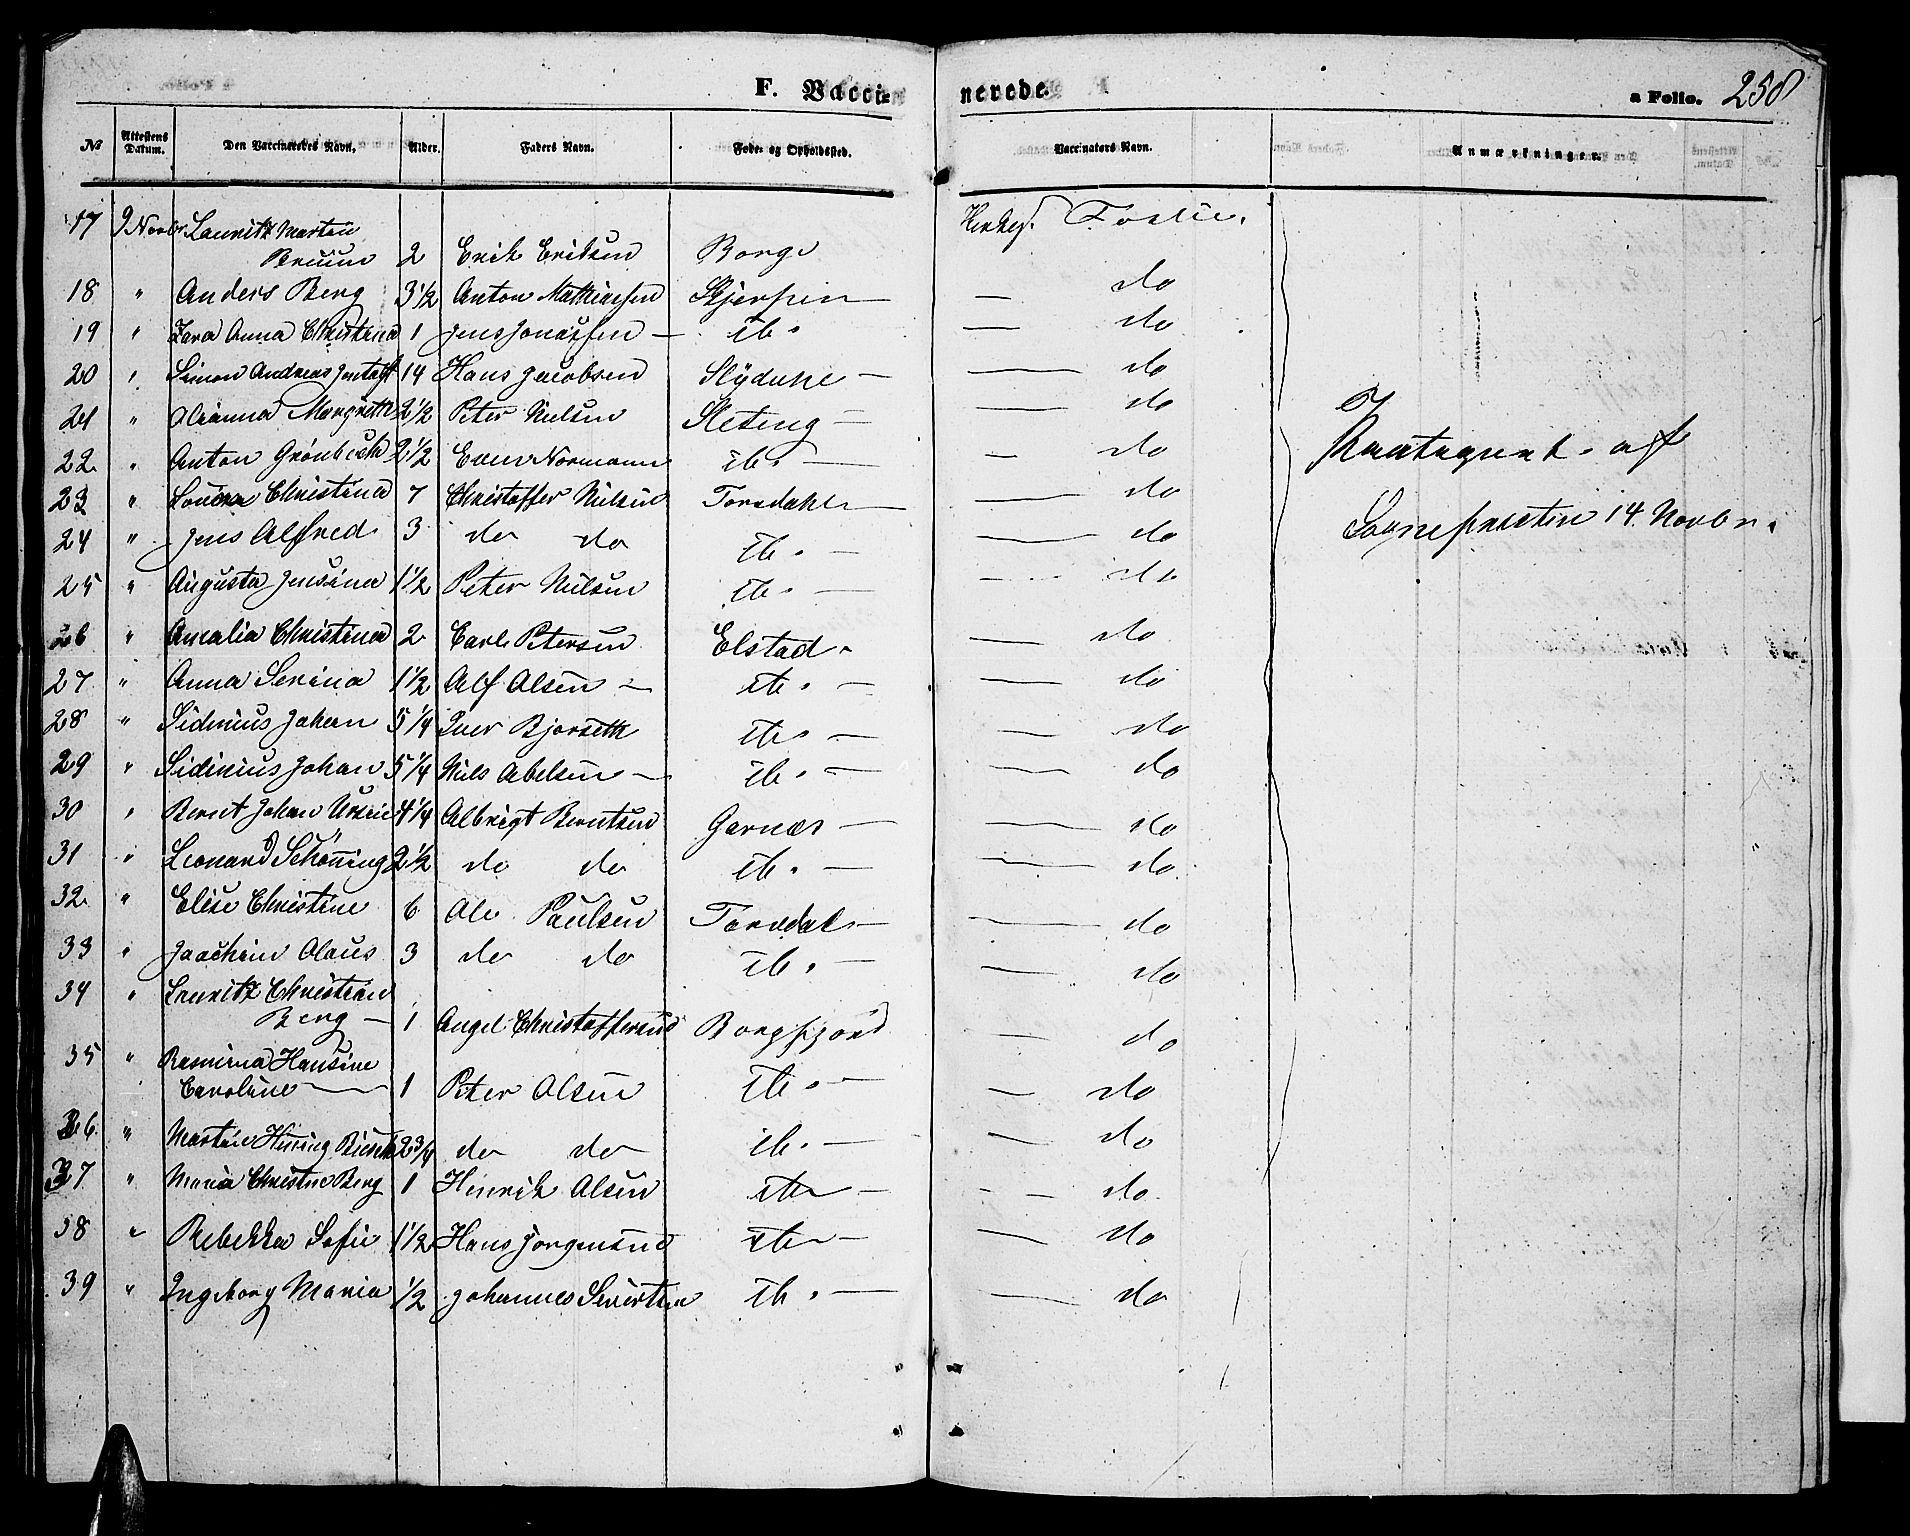 F. Vacci-
nerede.
a Folio. 258
№ Attestens Datum. Den Vaccineredes Navn. Alder. Faders Navn. Føde- og Opholdssted. Vaccinators Navn. Anmærkninger.
17 9 Novbr Lauritz Martin
Bruun 2 Erik Eriksen Borge
18 " Anders Berg 3 1/2 Anton Mathiassen do
19 " Anna Christina 1 Jens Jonassen — ib. — do
20 " Simon Andreas 14 Hans Jacobsen — do
21 " Margreth 2 1/2 Peter Nielsen — do
22 " Anton 2 1/2 Even Normann ib. — do
23 " Lovisa Christina 7 Christoffer Nielsen Torsdahl — do
24 " Jens Alfred 3 do do ib. — do
25 " Augusta Jensina 1 1/2 Peter Nielsen ib. — do
26 " Amalia Christina 2 Carl Petersen Elstad. — do
27 " Anna Serina 1 1/2 Alf Olsen — ib. — do
28 " Sidinius Johan 5 1/4 Iver Bjorseth ib. — do
29 " Sidinius Johan 5 1/4 Niels Abelsen — ib. — do
30 " Bernt Johan 4 1/4 Albrigt Berntsen Garnæs — do
31 " Leonard Schöning 2 1/2 do do ib. — do
32 " Elise Christine 6 Ole Paulsen Torsdal — do
33 " Joachim Olaus 3 do do ib. — do
34 " Lauritz Christian
Berg — 1 Angel Christoffersen Borgfjord — do
35 " Hansine
Caroline — 1 Peter Olsen ib. — do
36 " Martin 2 3/4 do do ib. — do
37 " Maria Christine Berg 1 Hinrik Olsen ib — do
38 " Rebekka Sofie 1 1/2 Hans Jörgensen ib — do
39 " Ingeborg Maria 1/2 Johannes Sivertsen ib. — do
af
Sognepresten 14. Novbr.